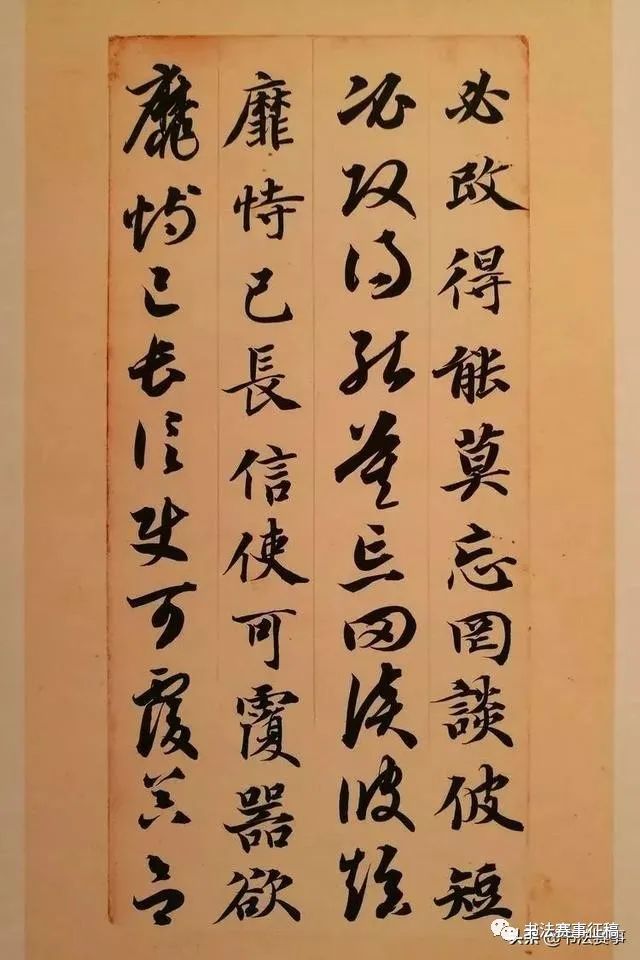 必改得能莫忘罔談彼短
必改得能莫忘罔談彼短
靡恃己長信使可覆器欲
靡恃己長信使可覆器欲
书法赛事征稿
头条@书法赛事